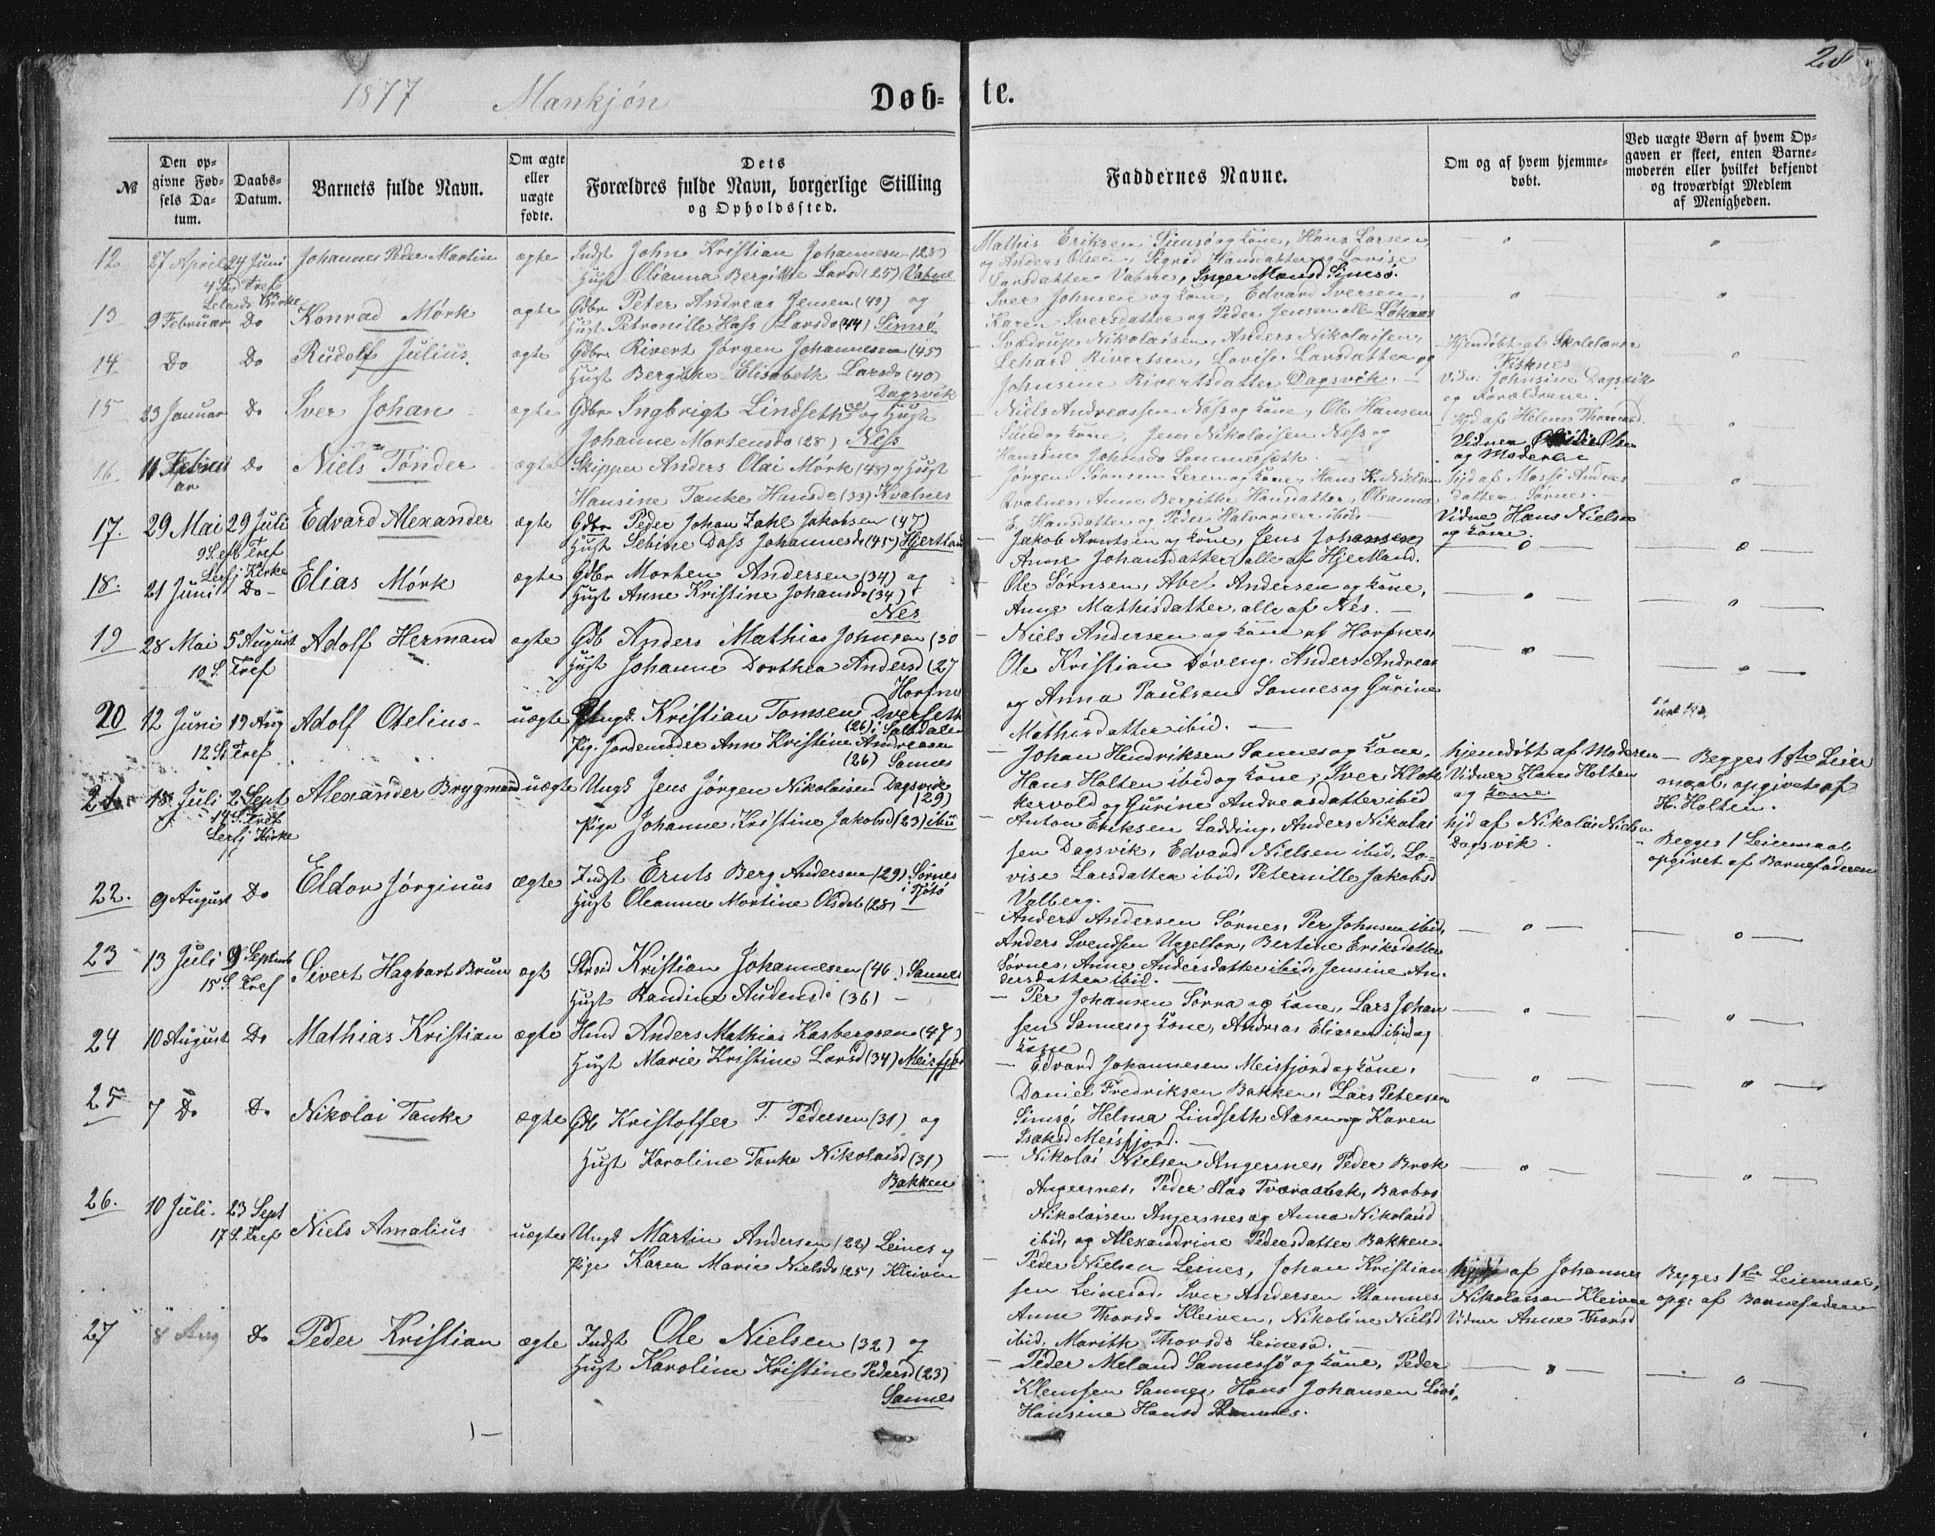 1877 Mankjøn Døb- te. 28
№
Den opgivne Fødsels Datum.
Daabs-Datum.
Barnets fulde Navn.
Om ægte eller uægte fødte.
Dets Forældres fulde Navn, borgerlige Stilling og Opholdssted.
Faddernes Navne.
Om og af hvem hjemmedøbt.
Ved uægte Børn af hvem Opgaven er skeet, enten Barnemoderen eller hvilket bekjendt og troværdigt Medlem af Menigheden.
12 27 April 24 Juni Johannes Peder Martin ægte Indst John Kristian Johannesen (28)
4 S. e. Tref Hust Olianna Bergitte Larsd (25) Vatne
Mathis Eriksen Simsø og Kone, Hans Larsen
og Anders Olsen, Sigrid Hansdatter og Lovise
Larsdatter Vatne, Inger Monsd Simsø.
13 9 Februar Do Konrad Mørk ægte Gdbr Peter Andreas Jensen (49) og
Hust Petronille Hass Larsd (44) Simsø
Iver Johnsen og Kone, Edvard Iversen,
Karen Iversdatter og Peder Jensen alle Løkaas
14 Do Do Rudolf Julius ægte Gdbr Rivert Jørgen Johannesen (45)
Hust Bergithe Elisabeth Larsd (40)
Dagsvik
Nikolaisen, Anders Nikolaisen,
Rivertsen, Lovise Larsdatter og
Johnsine Rivertsdatter Dagsvik.
Hjemdøbt af Skolelærer
Fisknes
Vidner Johnsine Dagsvik
og Forældrene.
15 23 Januar Do Iver Johan ægte Gdbr Ingbrigt Lindseth og Hust
Johanne Mortensd (28) Ness
Niels Andreassen Ness og Kone, Ole Hansen
Sund og Kone, Jens Nikolaisen Ness og
Hansine Johnsd
Hjd af Helene Thomasd
Vidner Olsen
og Moderen
16 11 Februar Do Niels Tønder ægte Skipper Anders Olai Mørk (48) og Hust
Hansine Tanke Hansd (33) Kvalnes
Jørgen Sørnsen og Kone, Hans K. Nielsen
Kvalnes, Anne Bergithe Hansdatter, Oleanna
E. Hansdatter og Peder Halvorsen ibid
Hjd af Andreas
datter Sørnes.
Vidner Hans Nielsen
og Kone.
17. 29 Mai 29 Juli Edvard Alexander ægte Gdbr Peder Johan Zahl Jakobsen (47)
9 S. e. Tref Hust Sebine Dass Johannesd (45) Hjertland
Jakob Arntsen og Kone, Jens Johansen,
Anne Johansdatter, alle af Hjertland.
18. 21 Juni Do Elias Mørk ægte Gdbr Morten Andersen (34) og
Hust Anne Kristine Johansd (34)
Nes
Ole Sørnsen, Abel Andersen og Kone,
Anne Mathisdatter, alle af Nes.
19 28 Mai 5 August Adolf Hermand ægte Gdb Anders Mathias Johnsen (30
10 S. Tref Hust Johanne Dorthea Andersd (27
Horfnes
Niels Andersen og Kone af Horfnes,
Ole Kristian Døveng. Anders Andreas
og Anna Paulsen Sannes og Gurine
Mathisdatter ibid.
20 12 Juni 19 Aug Adolf Otelius uægte Ungk. Kristian Tomsen Dverseth
12 S. Tref (26) i Saltdalen
Pig. Jordemoder Ann Kristine Andreasen
(26) Sannes
Johan Hendriksen Sannes og Kone,
Hans Holten ibid og Kone, Iver Klokkervold
og Gurine Andreasdatter ibid
hjemdøbt af Moderen
Vidner Hans Holten
og Kone
Begges 1ste Leiermaal,
opgivet af
H. Holten.
21 18 Juli 2 Sept Alexander Brygmand uægte Ungk Jens Jørgen Nikolaisen Dagsvik
14 S. Tref (29)
Lersj Kirke Pige Johanne Kristine Jakobsd (23) ibid
Anton Eriksen Ladding, Anders Nikolaisen
Dagsvik, Edvard Nielsen ibid, Lovise
Larsdatter ibid, Peternille Jakobsd
Valberg.
hjd af Nikolai Nielsen
Dagsvik.
Begges 1 Leiermaal
opgivet af Barnefaderen
22. 9 August Do Eldor Jørginus ægte Indst Eruls Berg Andersen (29) Sørnes
Hust Oleanna Martine Olsdat (28) i Tjøtø
Anders Andersen Sørnes, Per Johnsen ibid,
Anders Svendsen Uggelfor, Bertine Eriksdatter
Sørnes, Anne Andersdatter ibid, Jensine Andersdatter
ibid.
23 13 Juli 9 Septemb Sivert Hagbart Brun ægt Strsid Kristian Johannesen (46) Sannes
15 S. Tref Hust Randine Audensd (36)
Per Johansen Sørra og Kone, Lars Johansen
Sannes og Kone, Andreas Eliasen ibid og
Kone
24 10 August Do Mathias Kristian ægte Hmd Anders Mathias Kasbergsen (47)
Hust Marie Kristine Larsd (34) Meisfjord
Edvard Johannesen Meisfjord og Kone,
Daniel Fredriksen Bakken, Lars Petersen
Simsø, Helma Lindseth Aasen og Karen
Isaksd Meisfjord.
25 7 Do Do Nikolai Tanke ægte Gdb Kristoffer T. Pedersen (31) og
Hust Karoline Tanke Nikolaisd (31)
Bakken
Nikolai Nielsen Angersnes, Peder Brok
Angersnes, Peder Aas Tveraabak, Barbro
Nikolaisen Angersnes og Anna Nikolaisd
ibid, og Alexandrine Pedersdatter Bakken.
26. 10 Juli 23 Sept Niels Amalius uægte Ungk Martin Andersen (22) Leines og
17 S. Tref Pige Karen Marie Nielsd (25) Kleiven
Peder Nielsen Leines, Johan Kristiansen
Leinesod, Iver Andersen Stamnes
Anne Thorsd Kleiven, Nikoline Nielsd
ibid, Marith Thorsd Leinesod.
hjd af Johannes
Nikolaisen Kleiven
Vidner Anne Thorsd
Begges 1ste Leiermaal,
opg: af Barnefaderen
27 8 Aug Do Peder Kristian ægte Indst Ole Nielsen (32) og
Hust Karoline Kristine Pedersd (23)
Sannes
Peder Meland Sannessø og Kone, Peder
Klemsen Sannes, Hans Johansen
Hansine Hansd Sannes.